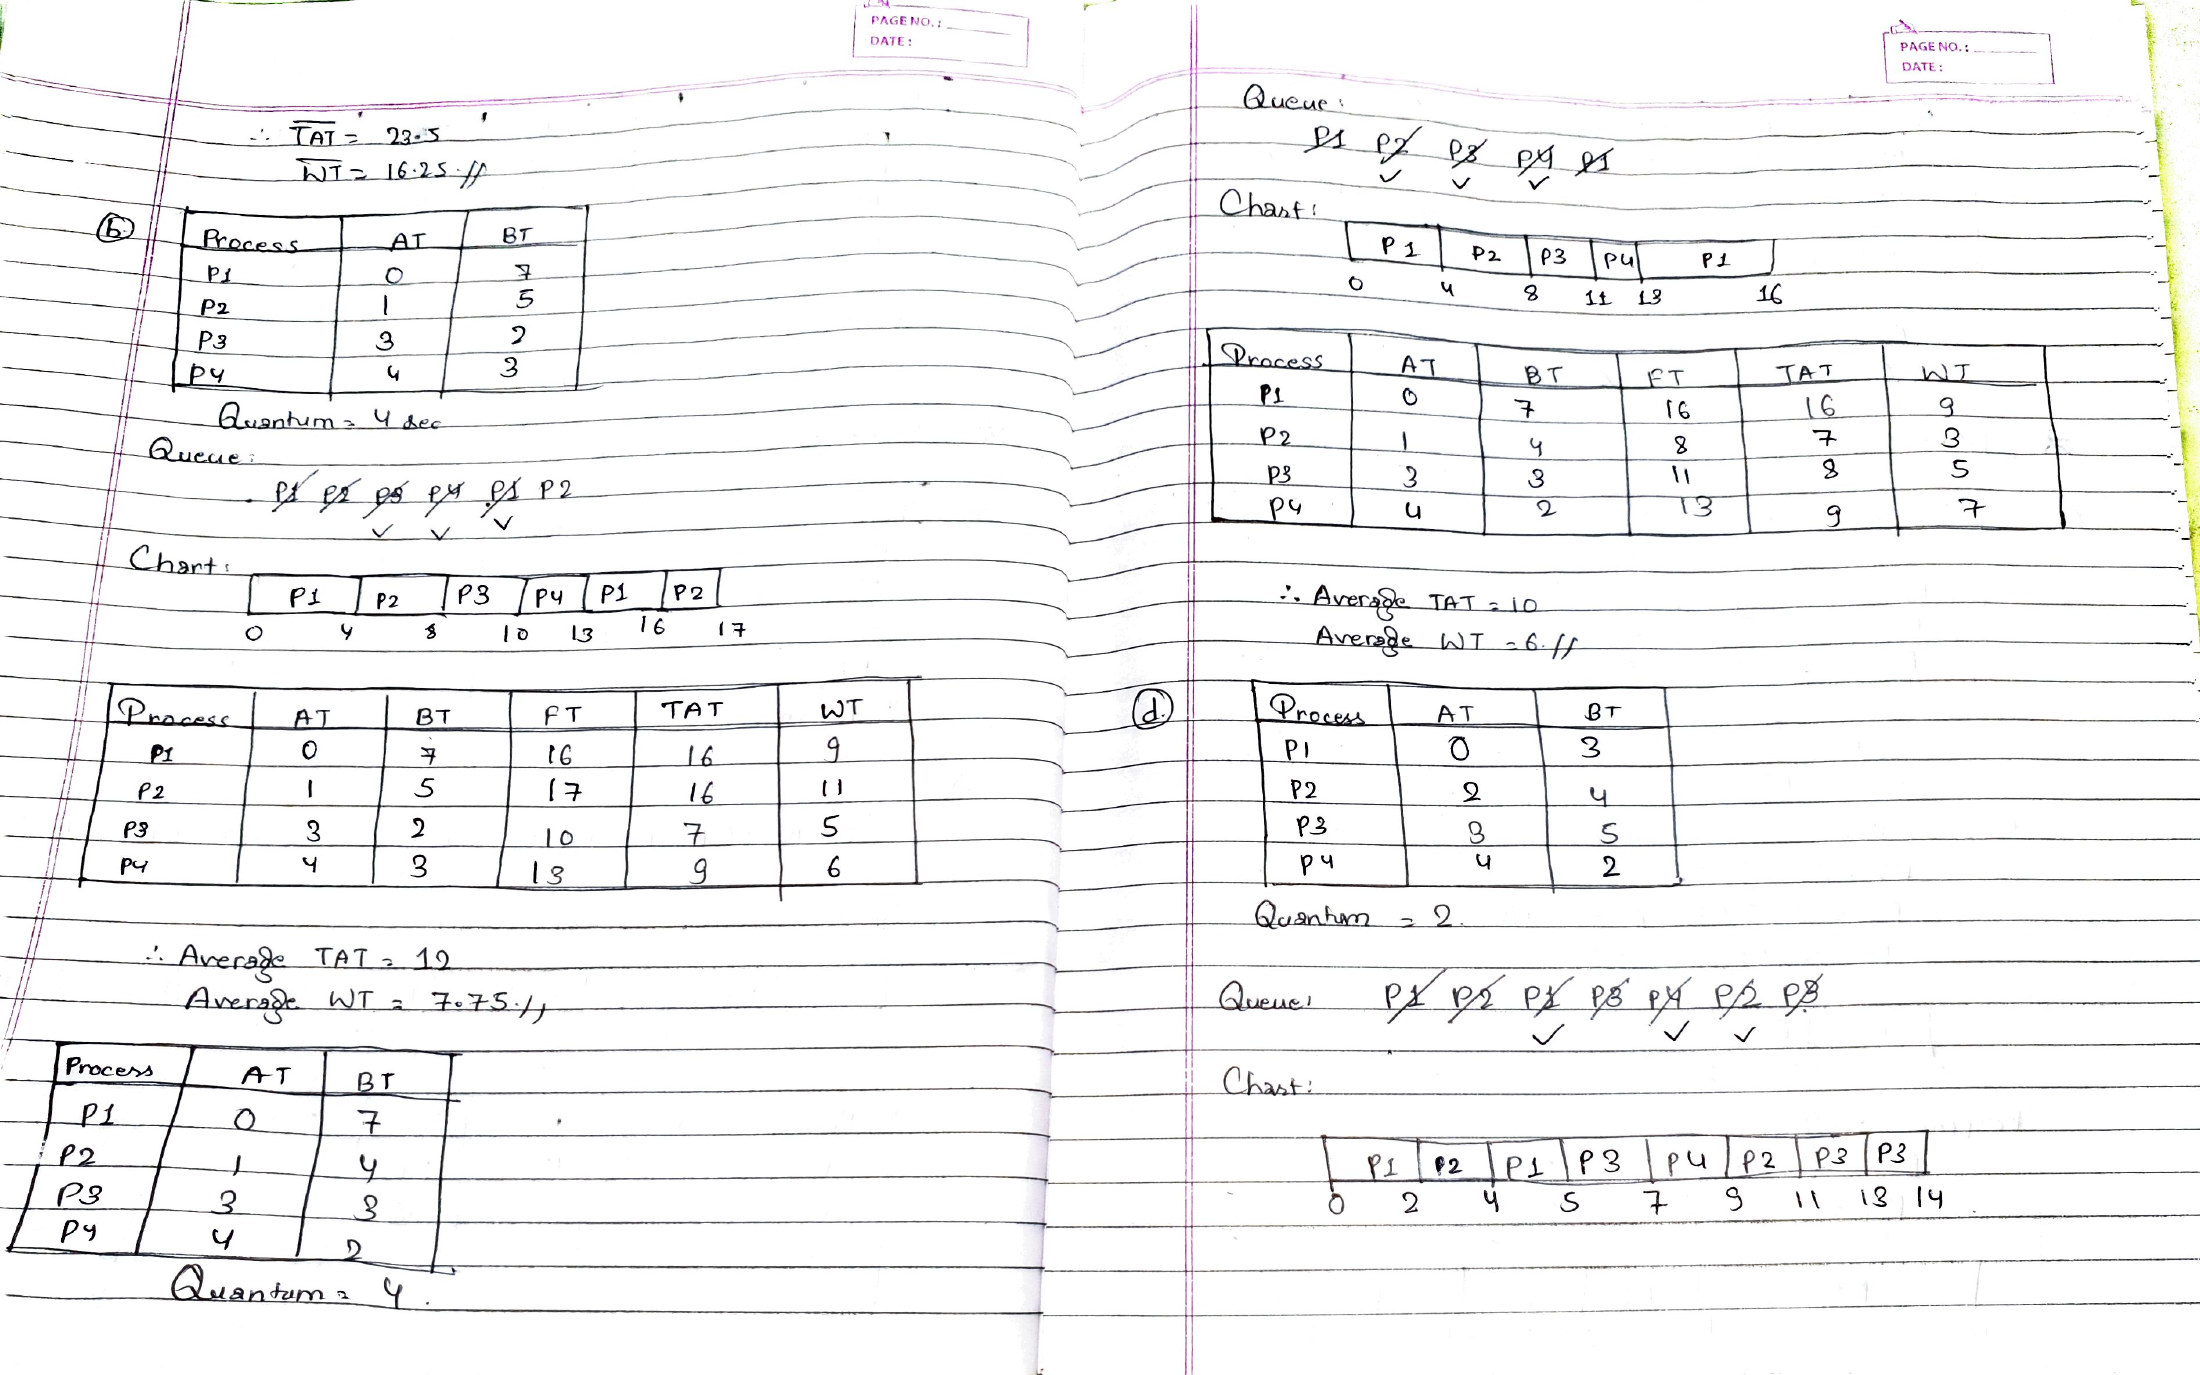 PAGE NO.:
DATE:
∴ TAT = 23.5
WT = 16.25 //
(b.)
Process AT BT
P1 0 7
P2 1 5
P3 3 2
P4 4 3
Quantum = 4 sec
Queue:
P1 P2 P3 P4 P1 P2
✓ ✓ ✓
Chart:
P1 P2 P3 P4 P1 P2
0 4 8 10 13 16 17
Process AT BT FT TAT WT
P1 0 7 16 16 9
P2 1 5 17 16 11
P3 3 2 10 7 5
P4 4 3 13 9 6
∴ Average TAT = 12
Average WT = 7.75 //
Process AT BT
P1 0 7
P2 1 4
P3 3 3
P4 4 2
Quantum = 4.
PAGE NO.:
DATE:
Queue:
P1 P2 P3 P4 P1
✓ ✓ ✓
Chart:
P1 P2 P3 P4 P1
0 4 8 11 13 16
Process AT BT FT TAT WT
P1 0 7 16 16 9
P2 1 4 8 7 3
P3 3 3 11 8 5
P4 4 2 13 9 7
∴ Average TAT = 10
Average WT = 6 //
(d.)
Process AT BT
P1 0 3
P2 2 4
P3 3 5
P4 4 2
Quantum = 2.
Queue: P1 P2 P1 P3 P4 P2 P3
✓ ✓ ✓
Chart:
P1 P2 P1 P3 P4 P2 P3 P3
0 2 4 5 7 9 11 13 14